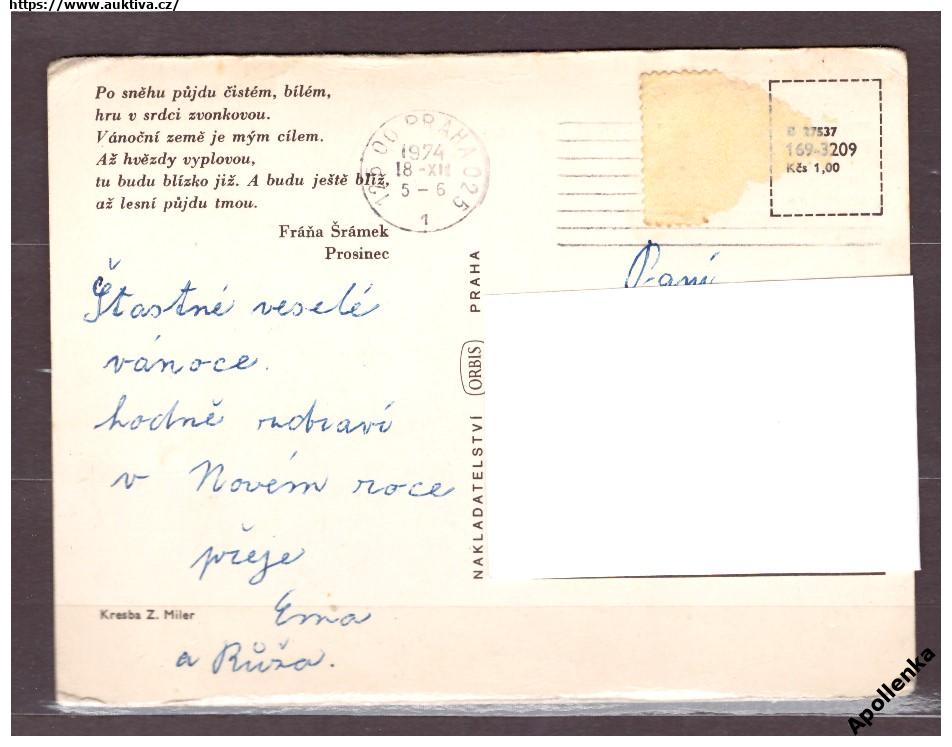 https://www.auktiva.cz/
Po sněhu půjdu čistém, bílém,
hru v srdci zvonkovou.
Vánoční země je mým cílem.
Až hvězdy vyplovou,
tu budu blízko již. A budu ještě blíž,
až lesní půjdu tmou.
Fráňa Šrámek
Prosinec
PRAHA 025
1974
18-XII
5-6
1
27537
169-3209
Kčs 1,00
Paní
Šťastné veselé
vánoce.
hodně zdraví
v Novém roce
přeje
Ema
a Růža.
Kresba Z. Miler
NAKLADATELSTVÍ ORBIS PRAHA
Apollenka